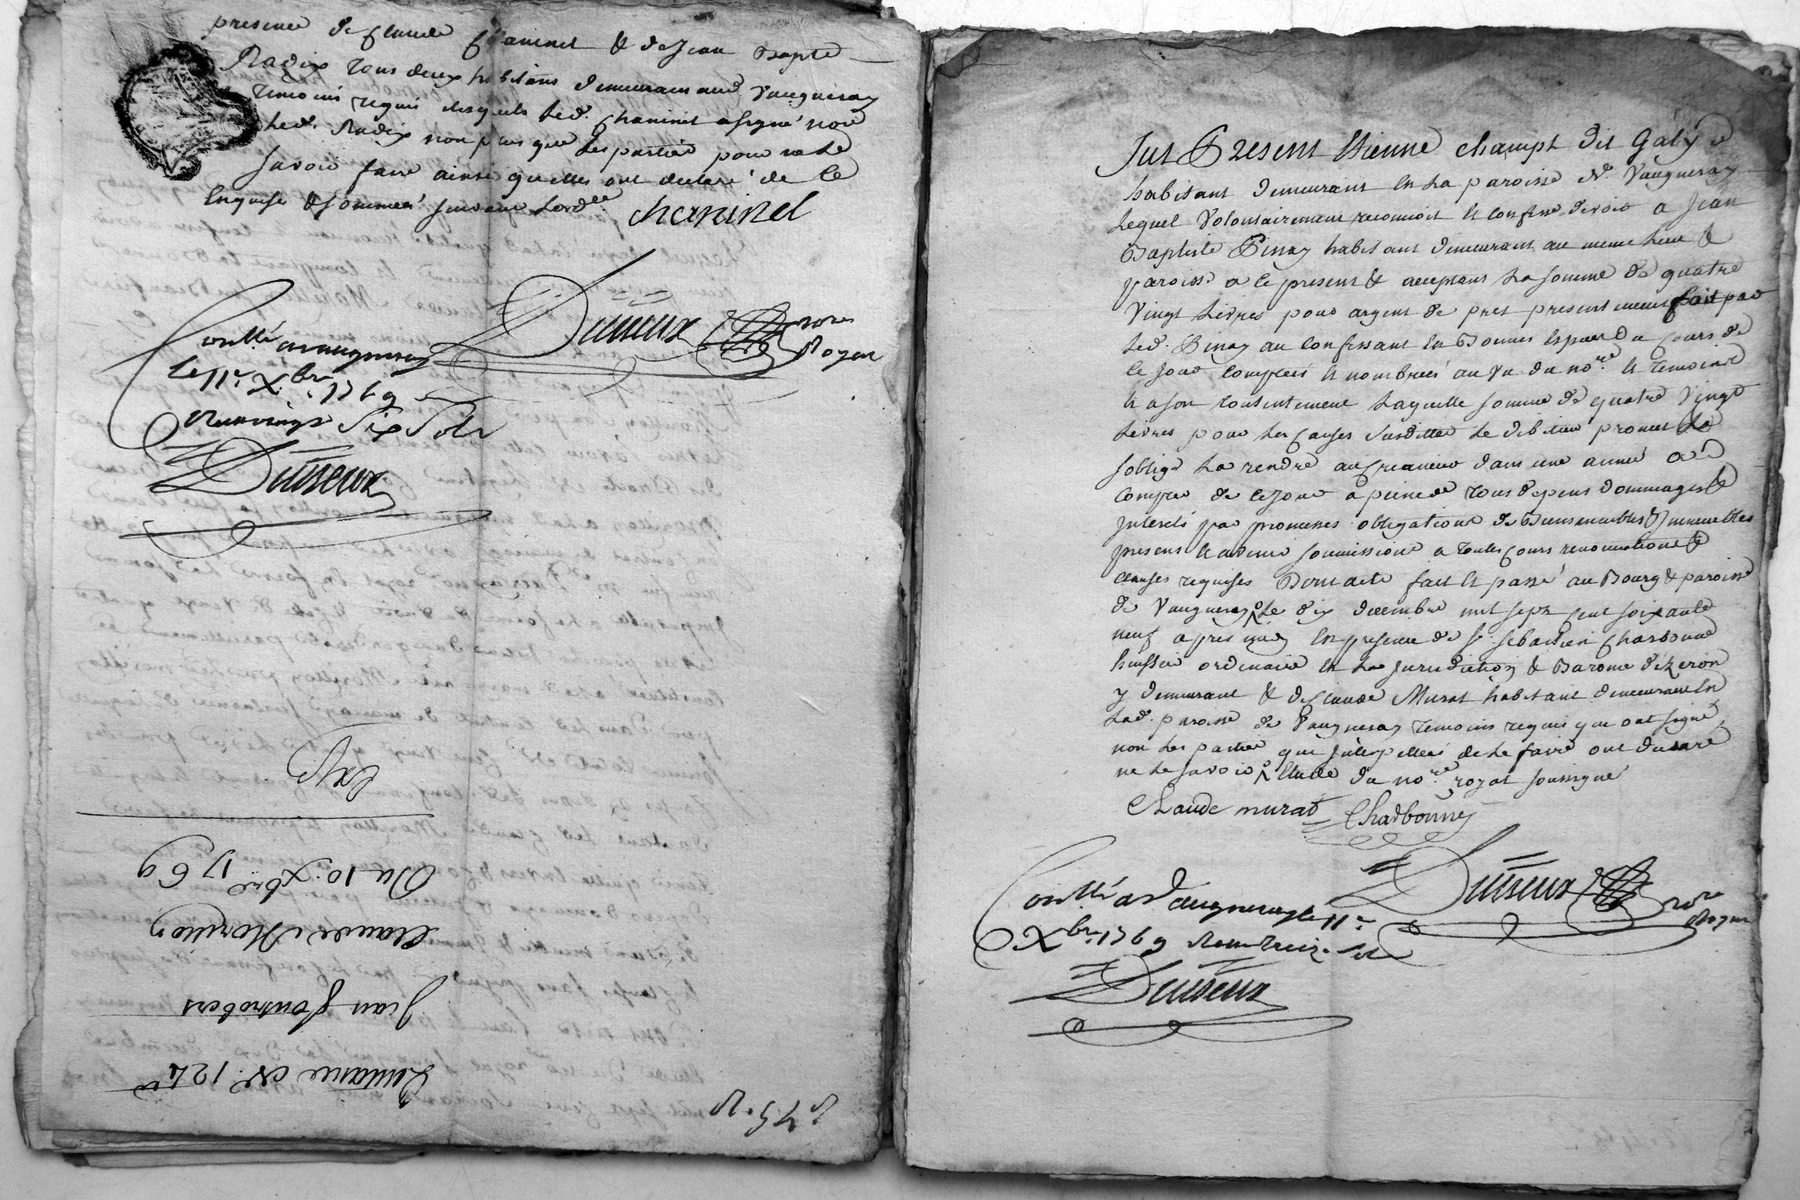 presence de Claude Chaninel & de Jean Bapte
Radix tous deux habitans demeurans aud Vaugneray
temoins requis desquels led. Chaninel a signé non
led. Radix non plus que les parties pour ne le
savoir faire ainsi quelles ont declaré de ce
Enquises & sommées suivant Lordce
chaninel
Duireux nore Royal
Conllé a Vaugneray
le 11e Xbre 1769
Recu vingt Six Sols
Duireux
Exp
Du 10. Xbre 1769
Claude Morillon
Jean
Quittance de 124
Fut Present Etienne champt dit Galy
habitant demeurant en la paroisse de Vaugneray
lequel volontairement reconnoit et confesse devoir a Jean
Baptiste Pinay habitant demeurant au meme lieu &
paroisse a ce present & acceptant la somme de quatre
Vingt livres pour argent de pret presentement fait par
led. Pinay au confessant en bonnes especes du cours de
ce jour comptées et nombrées au vu du nore. et temoins
et a son contentement laquelle somme de quatre Vingt
livres pour les causes susdittes le debiteur promet &
soblige la rendre au creancier dans une année a
compter de ce jour a peine de tous depens dommages &
interets par promesses obligations de biens meubles & immeubles
presens et avenir soumissions a toutes cours renonciations &
clauses requises Dont acte fait et passé au Bourg & paroisse
de Vaugneray le dix decembre mil sept cent soixante
neuf apres midy En presence de sr. sebastien Charbonné
huissier ordinaire en la jurisdiction & Baronie dizeron
y demeurant & de Claude Murat habitant demeurant en
lad. paroisse de Vaugneray temoins requis qui ont signé
non les parties qui interpellées de le faire ont declaré
ne le savoir Etude du nore. royal soussigné
Claude murat Charbonné
Duireux nore Royal
Conllé a Vaugneray le 11e
Xbre 1769 Recu treize sols
Duireux